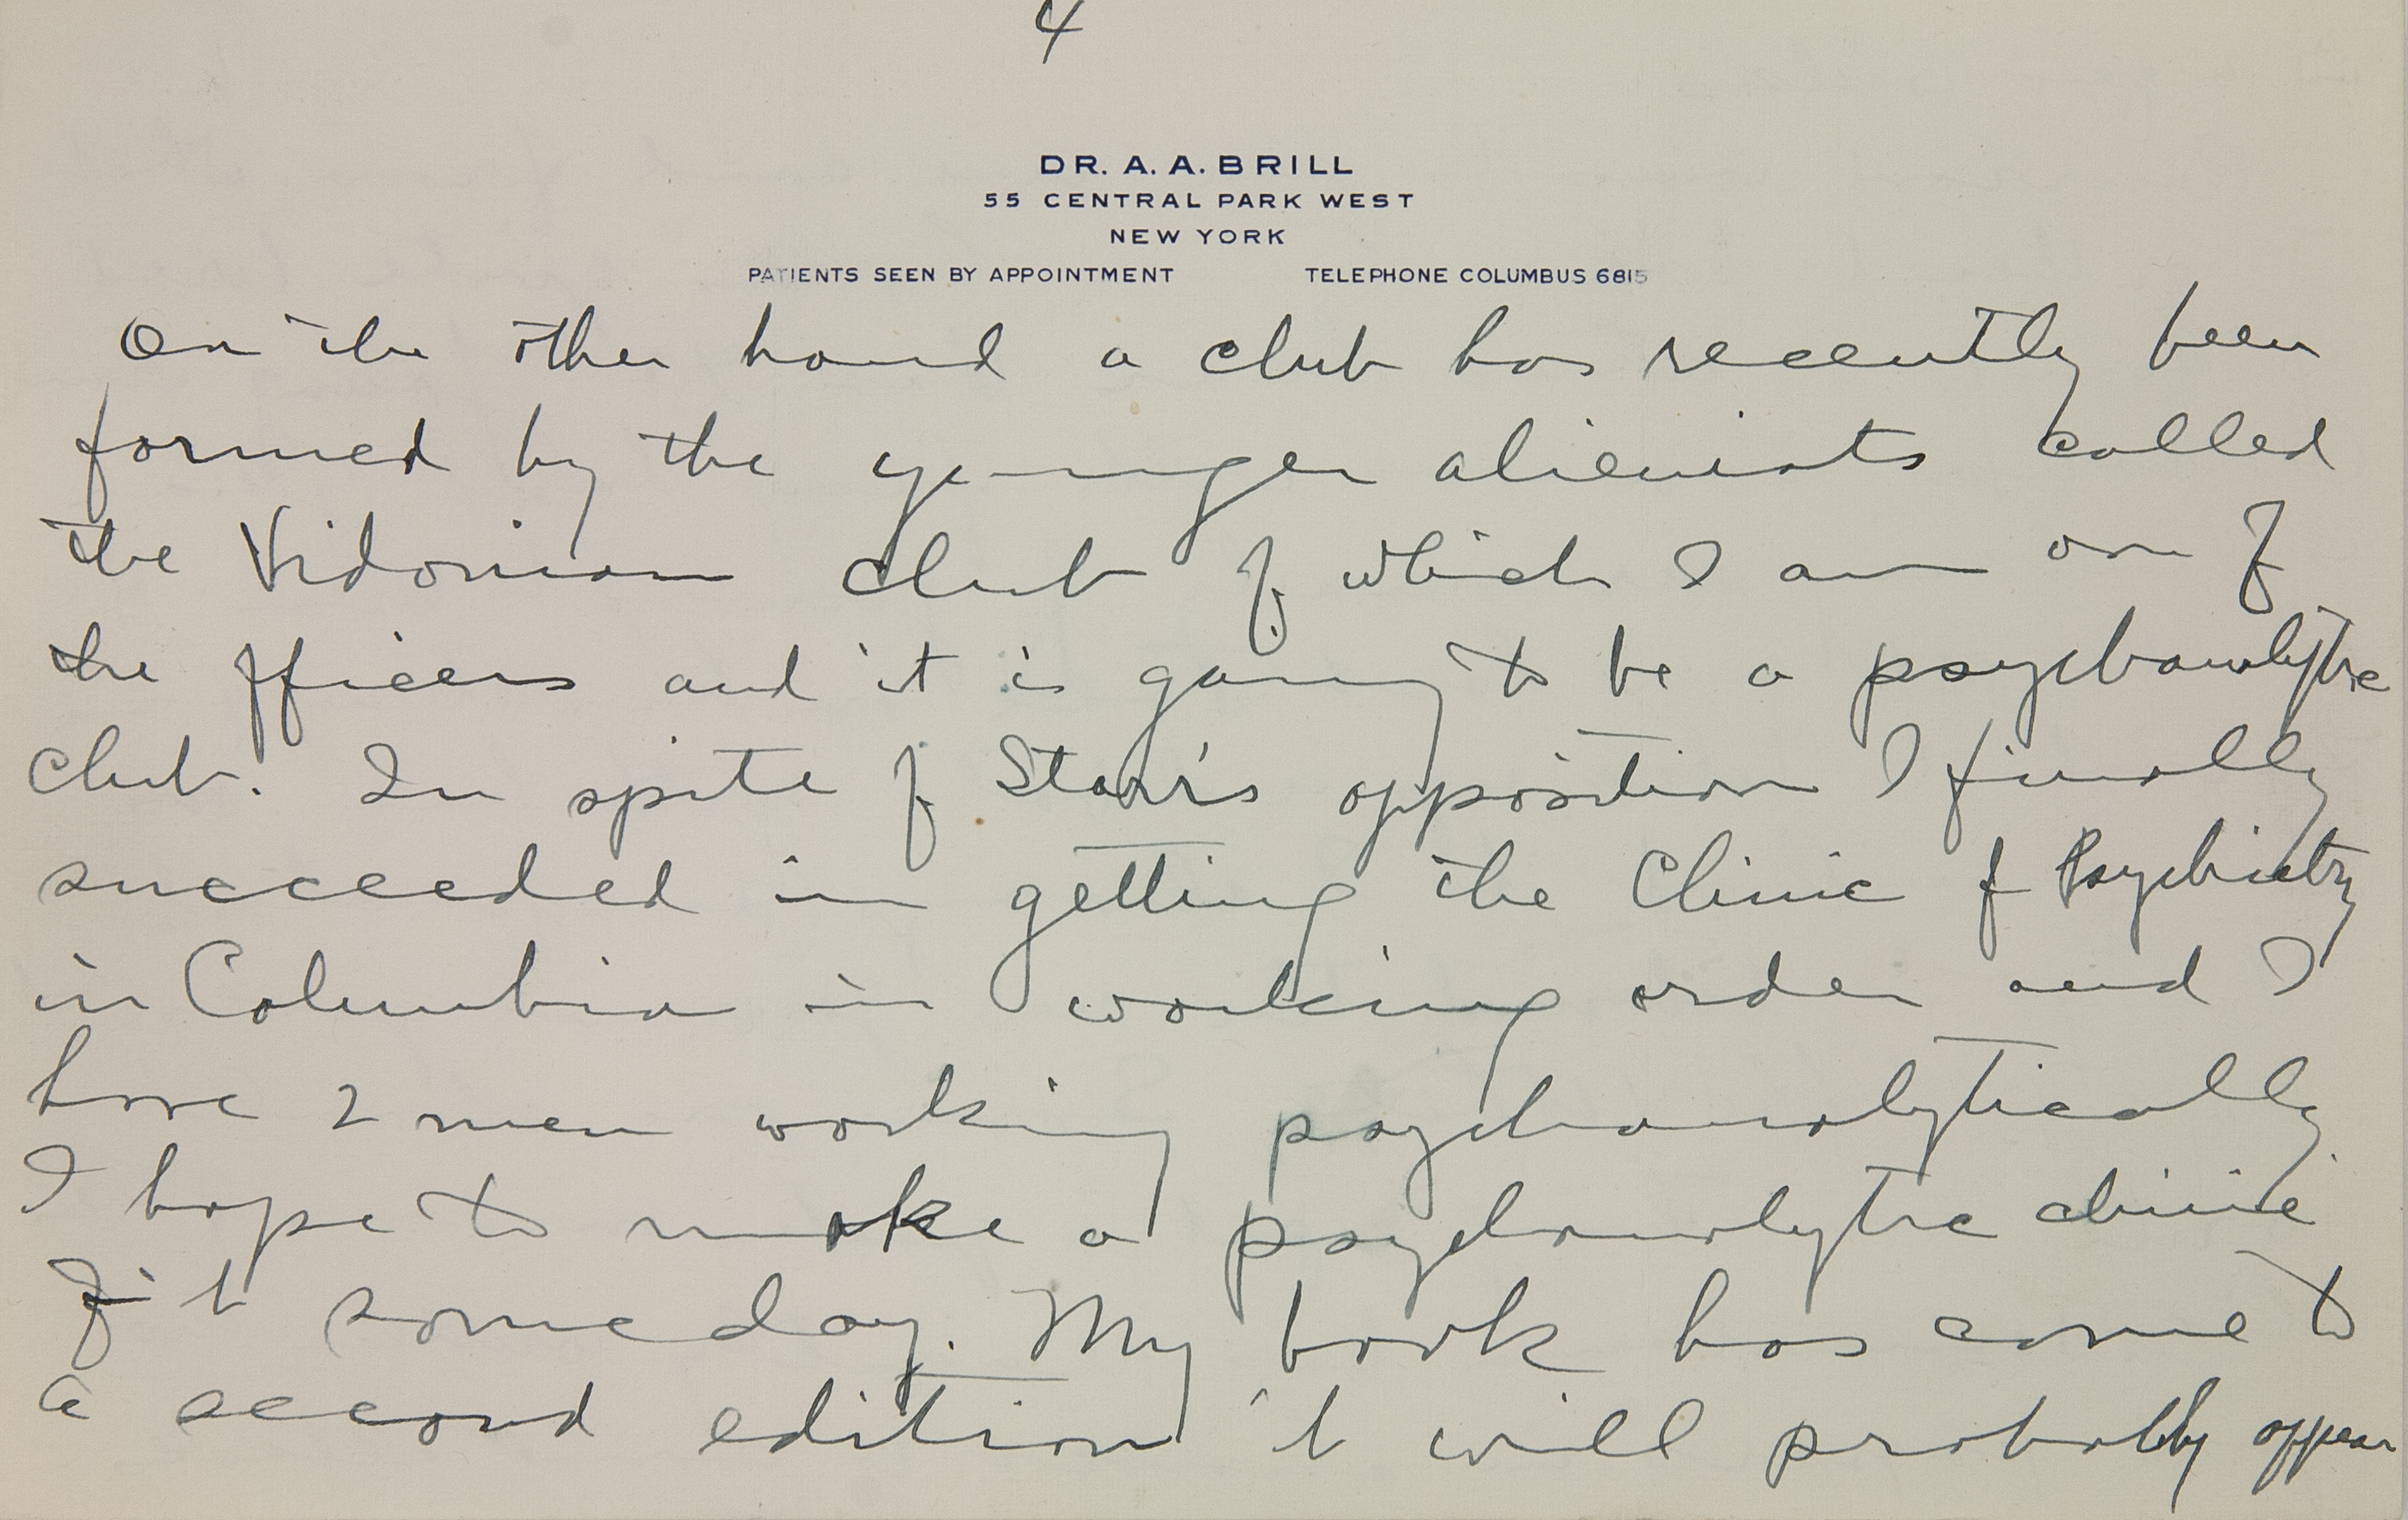 4
DR. A. A. BRILL
55 CENTRAL PARK WEST
NEW YORK
PATIENTS SEEN BY APPOINTMENT TELEPHONE COLUMBUS 6815
On the other hand a club has recently been
formed by the younger alienists called
the Vidonian Club of which I am one of
the officers and it is going to be a psychanalytic
Club. In spite of Starr's opposition I finally
succeeded in getting the Clinic of Psychiatry
in Columbia in working order and I
have 2 men working psychanalytically
I hope to make a psychanalytic clinic
of it someday. My book has come to
a second edition it will probably appear